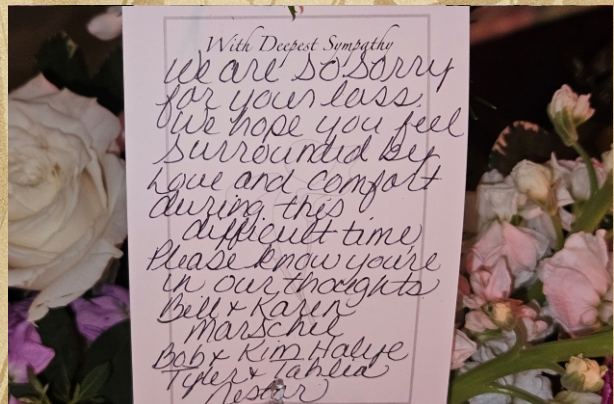 With Deepest Sympathy
We are so sorry
for your loss.
We hope you feel
surrounded by
love and comfort
during this
difficult time
Please know you're
in our thoughts
Bill & Karen
Marschel
Bob & Kim Halye
Tyler & Tahlia
Nestor